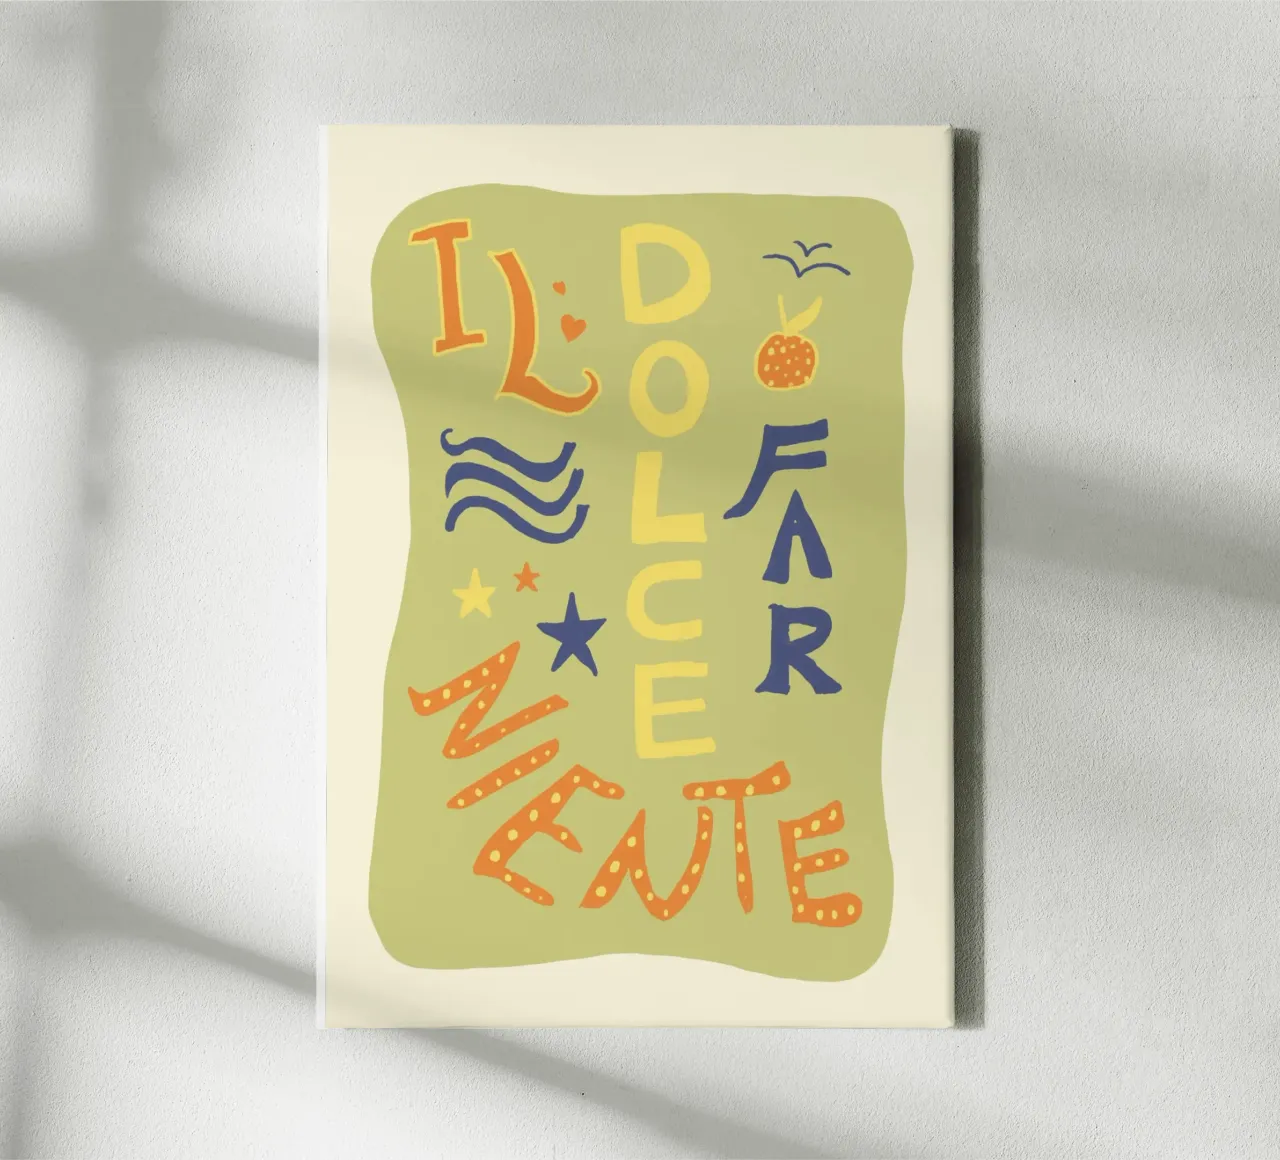 IL
DOLCE
FAR
NIENTE